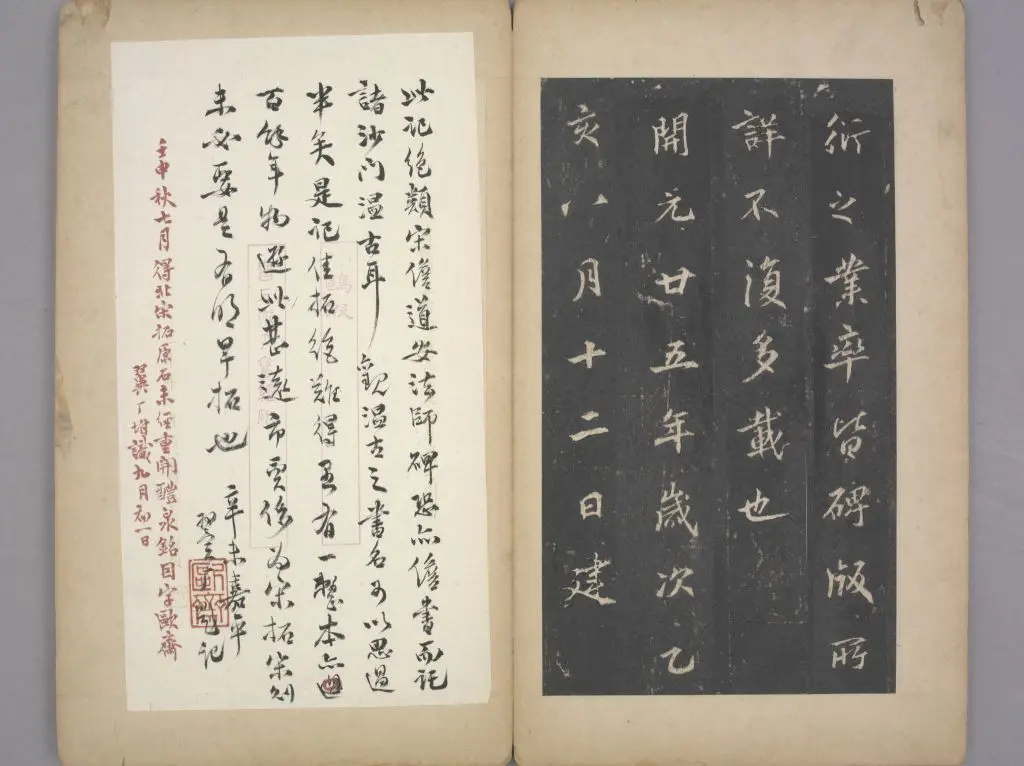 衍之業率皆碑版所
詳不復多載也
開元廿五年歲次乙
亥八月十二日建
此記絕類宋儋道安法師碑恐亦儋書而託
諸沙門溫古耳 觀溫古之書名可以思過
半矣是記佳拓絕難得吾有一整本亦過
百餘年物遜此甚遠市賈侈為宋拓宋則
未必要是有明早拓也 辛未嘉平
翼盦記
壬申秋七月得北宋拓原石未經重開醴泉銘因字歐齋
翼厂坿識九月初一日